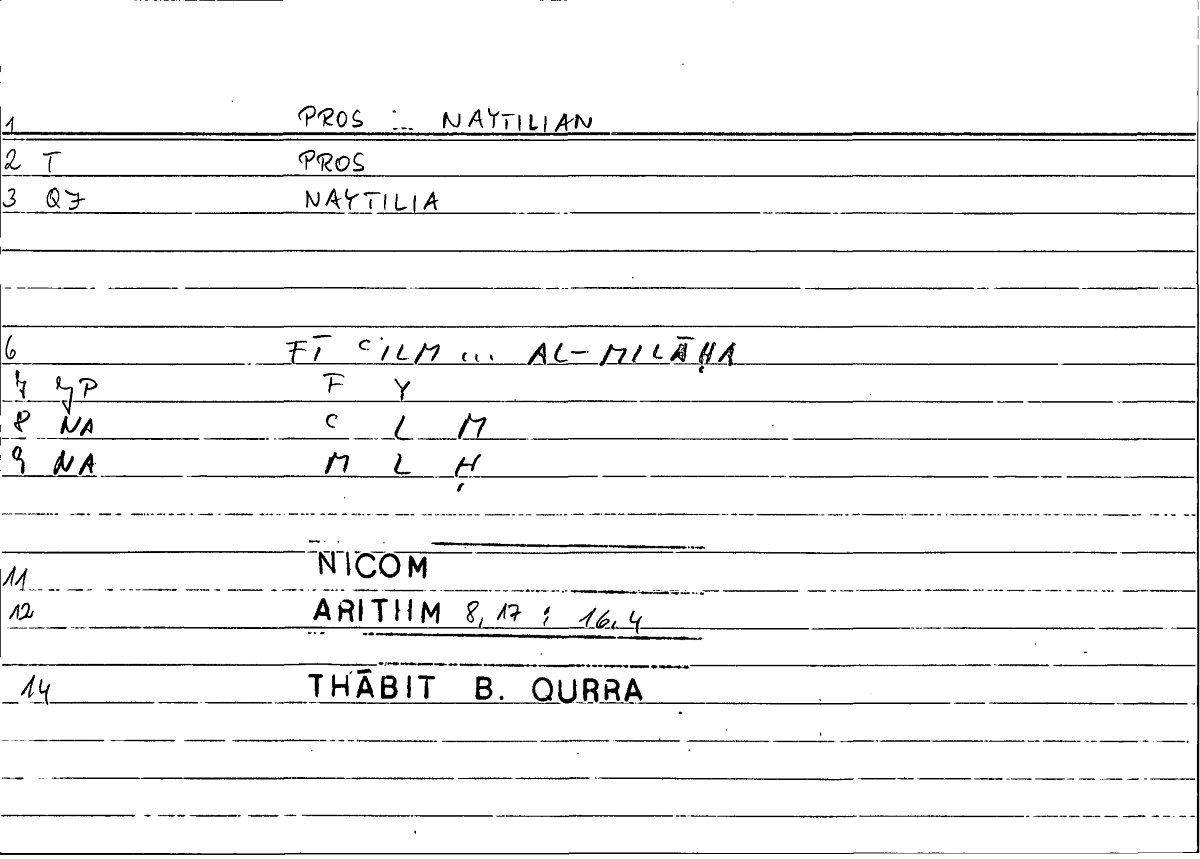 1 PROS ... NAYTILIAN
2 T PROS
3 QJ NAYTILIA
6 FĪ ʿILM ... AL-MILĀḤA
7 P F Y
8 NA C L M
9 NA M L Ḥ
11 NICOM
12 ARITHM 8,17 ; 16.4
14 THĀBIT B. QURRA